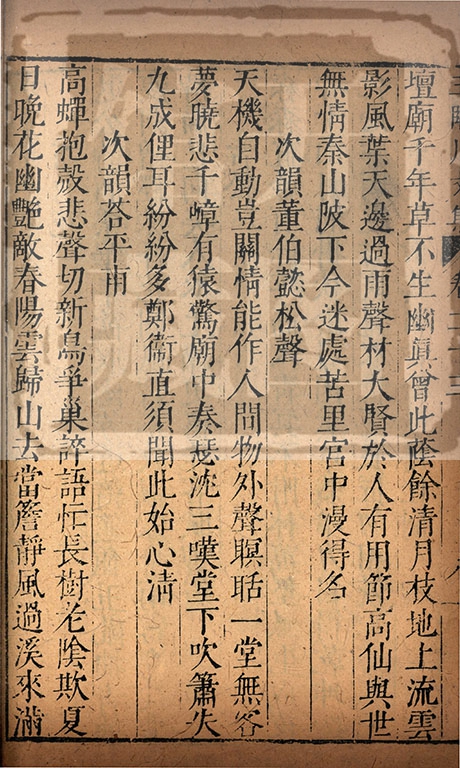 壇廟千年草不生幽眞曾此蔭餘清月枝地上流雲
影風葉天邊過雨聲材大賢於人有用節高仙與世
無情秦山陂下今迷處苦里宮中漫得名
次韻董伯懿松聲
天機自動豈關情能作人間物外聲暝聒一堂無客
夢曉悲千嶂有猿驚廟中奏瑟沈三嘆堂下吹簫失
九成俚耳紛紛多鄭衞直須聞此始心清
次韻荅平甫
高蟬抱殼悲聲切新鳥爭巢誶語忙長樹老陰欺夏
日晚花幽艷敵春陽雲歸山去當簷靜風過溪來滿